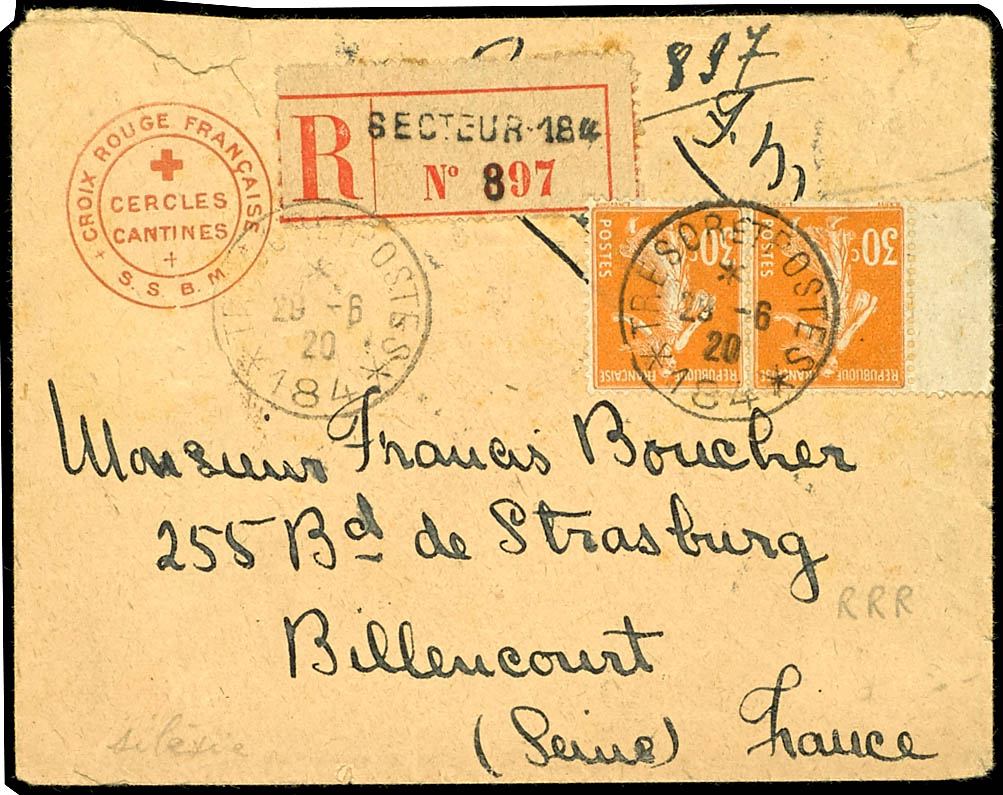 CROIX ROUGE FRANÇAISE
CERCLES
CANTINES
S. S. B. M.
R
SECTEUR 184
N° 897
897
30c
POSTES
REPUBLIQUE FRANÇAISE
30c
POSTES
REPUBLIQUE FRANÇAISE
TRESOR ET POSTES
28 -6
20
184
TRESOR ET POSTES
28 -6
20
184
Monsieur Francis Boucher
255 Bd de Strasburg
RRR
Billencourt
(Seine) France
silésie